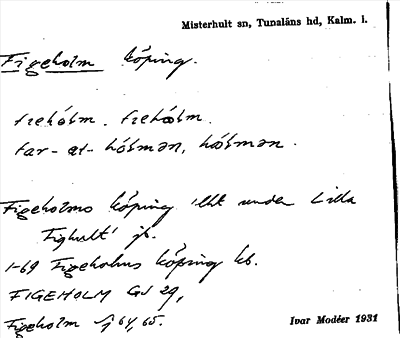 Misterhult sn, Tunaläns hd, Kalm. l.
Figeholm köping.
far - at - hólmən, hólmən.
Figeholms köping under Lilla
1-69 Figeholms köping kb.
FIGEHOLM GS 29,
Figeholm 64, 65.
Ivar Modéer 1931